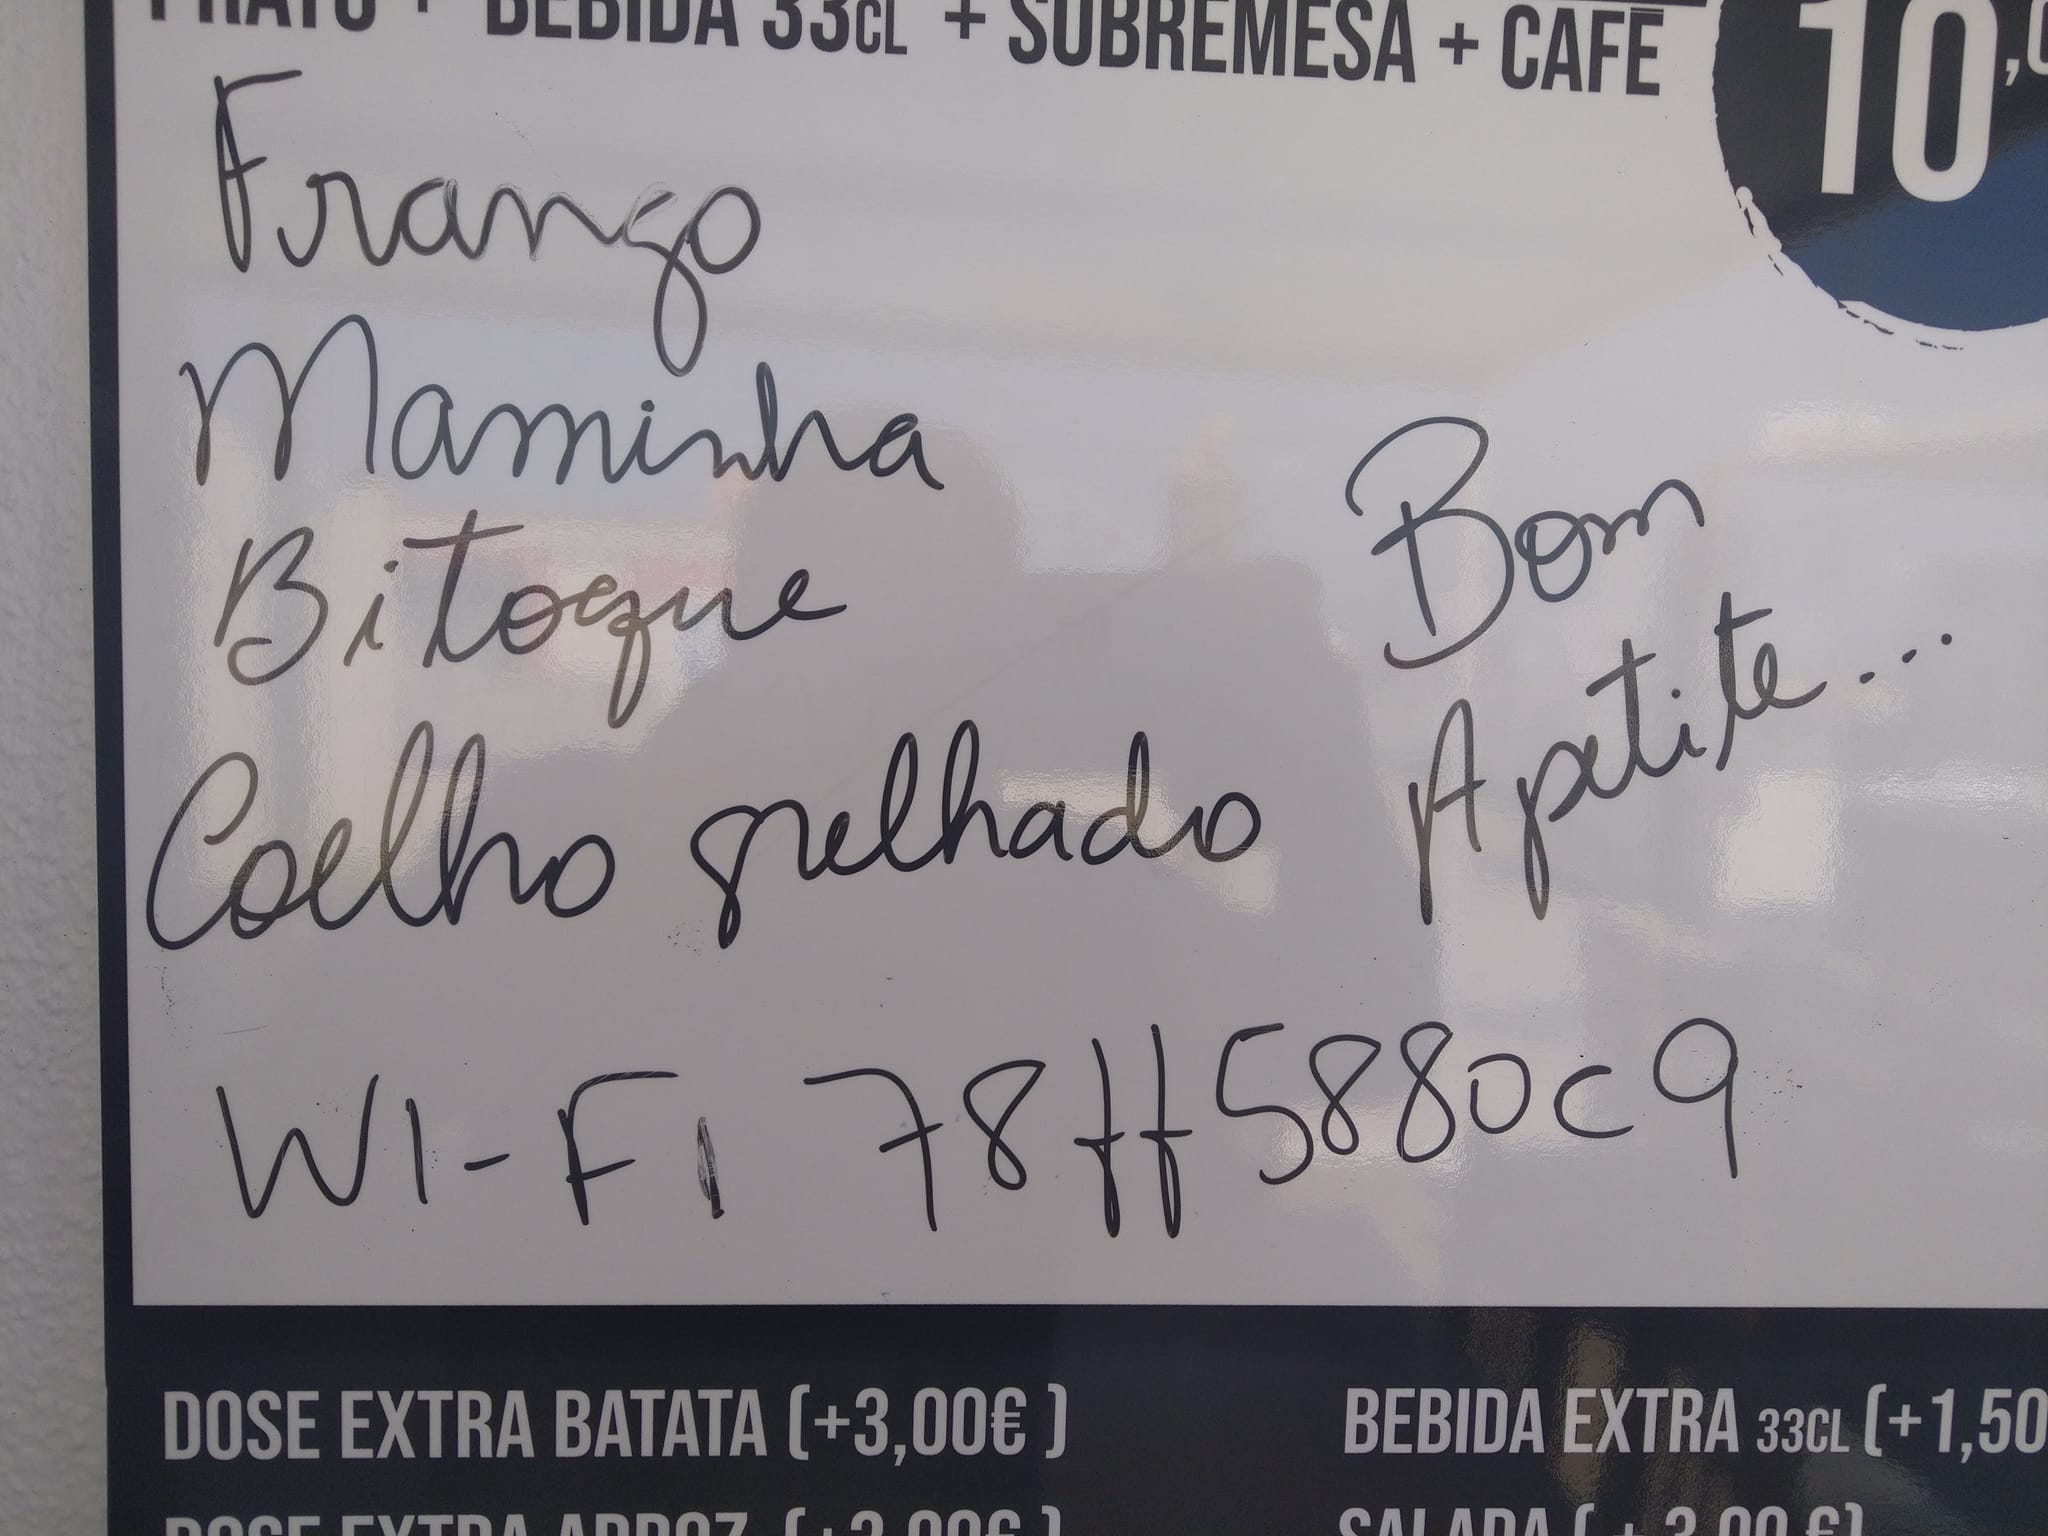 PRATO + BEBIDA 33CL + SOBREMESA + CAFÉ
10,0
Frango
Maminha
Bitoque
Coelho grelhado
Bom
Apetite...
WI-FI 78ff5880c9
DOSE EXTRA BATATA (+3,00€ )
BEBIDA EXTRA 33CL (+1,50
DOSE EXTRA ARROZ (+2,00€ )
SALADA ( + 3,00 €)